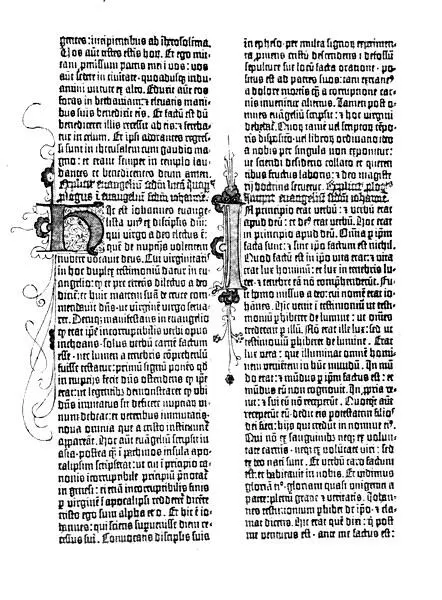 tentes: incipientibus ab iherosolima.
Vos aūt estis testes horū. Et ego mit-
tam promissum patris mei in vos: vos
aūt sedete in civitate · quoadusq; indu-
amini virtute ex alto. Eduxit autē eos
foras in bethaniam: ⁊ elevatis mani-
bus suis benedixit eis. Et factū est dū
benediceret illis recessit ab eis: ⁊ fereba-
tur in celum. Et ipsi adorantes regres-
si sunt in iherusalem cum gaudio ma-
gno: et erant semper in templo lau-
dantes et benedicentes deum amen.
Explicit evangeliū
Hic est iohannes evange-
lista un⁹ ex discipulis dni:
qui virgo a deo electus ē:
quē de nuptijs volentem
nubere vocavit deus. Cui virginitatis
in hoc duplex testimoniū datur in evā-
gelio: q et pre ceteris dilectus a deo
dicit: et huic matrem suā de cruce com-
mendavit dn̄s · ut virginē virgo serva-
ret. Deniq; manifestans in evangelio
q erat ip̄e incorruptibilis verbi opus
inchoans · solus verbū carnē factum
esse · nec lumen a tenebris cōprehensū
fuisse testatur: primū signū ponēs qd
in nuptijs fecit dn̄s ostendens q ip̄e
erat: ut legentibus demonstraret q ubi
dn̄s invitatus sit deficere nuptiarū vi-
num debeat: et veteribus immutatis ·
nova omnia que a cristo instituunt
appareāt. Hoc aūt evangeliū scripsit in
asia · postea q̄ i pathmos insula apo-
calipsim scripserat: ut cui i principio ca-
nonis incorruptibile principiū p̄notat
in genesi: ei etiā incorruptibilis finis
p virginē i apocalipsi redderet dicēte
cristo ego sum alpha et o. Et hic ē io-
hannes: qui sciens supervenisse diem re-
cessus sui. Convocatis discipulis suis
in epheso · per multa signoꝝ experimen-
ta promens cristū descendens ī defossū
sepulture sue locū facta oratione · po-
situs est ad patres suos: tam extrane⁹
a dolore mortis q̄ a corruptione car-
nis invenitur alienus. Tamen post o-
mnes evangeliū scripsit: ⁊ hoc virgini
debebat. Quoꝝ tamē vel scriptoꝝ tēpo-
ris dispositio · vel libroꝝ ordinatio ideo
a nobis per singula non exponitur:
ut sciendi desiderio collato et querenti-
bus fructus laboris · ⁊ deo magiste-
rij doctrina servetur.
In principio erat verbū: ⁊ verbū erat
apud deū: et de⁹ erat verbū. Hoc erat
in principio apud deū. Omīa p ip̄m
facta sunt: ⁊ sine ip̄o factum est nichil.
Quod factū est in ip̄o vita erat: ⁊ vita
erat lux hominū: et lux in tenebris lu-
cet · ⁊ tenebre eā nō comp̄henderūt. Fu-
it homo missus a deo: cui nomē erat io-
hannes. Hic venit ī testimoniū ut testi-
moniū phiberet de lumine: ut omēs
crederent p illū. Nō erat ille lux: sed ut
testimoniū phiberet de lumine. Erat
lux vera: que illuminat omnē homi-
nem venientem in hūc mūdum. In mū-
do erat: ⁊ mūdus p ip̄m factus est: et
mūdus eū non cognovit. In ppria ve-
nit: ⁊ sui eū nō receperūt. Quotq̄t aūt
receperūt eū · dedit eis potestatem filios
dei fieri: hijs qui credūt in nomine ei⁹.
Qui nō ex sanguinibꝫ neqꝫ ex volun-
tate carnis · neqꝫ ex volūtate viri: sed
ex deo nati sunt. Et verbū caro factum
est: et habitavit in nobis. Et vidimus
gloriā ei⁹ · gloriam quasi unigeniti a
patre: plenū gratie ⁊ veritatis. Iohan-
nes testimonium phibet de ip̄o · ⁊ cla-
mat dicens. Hic erat quē dixi: q̄ post
me venturus est · ante me factus est: